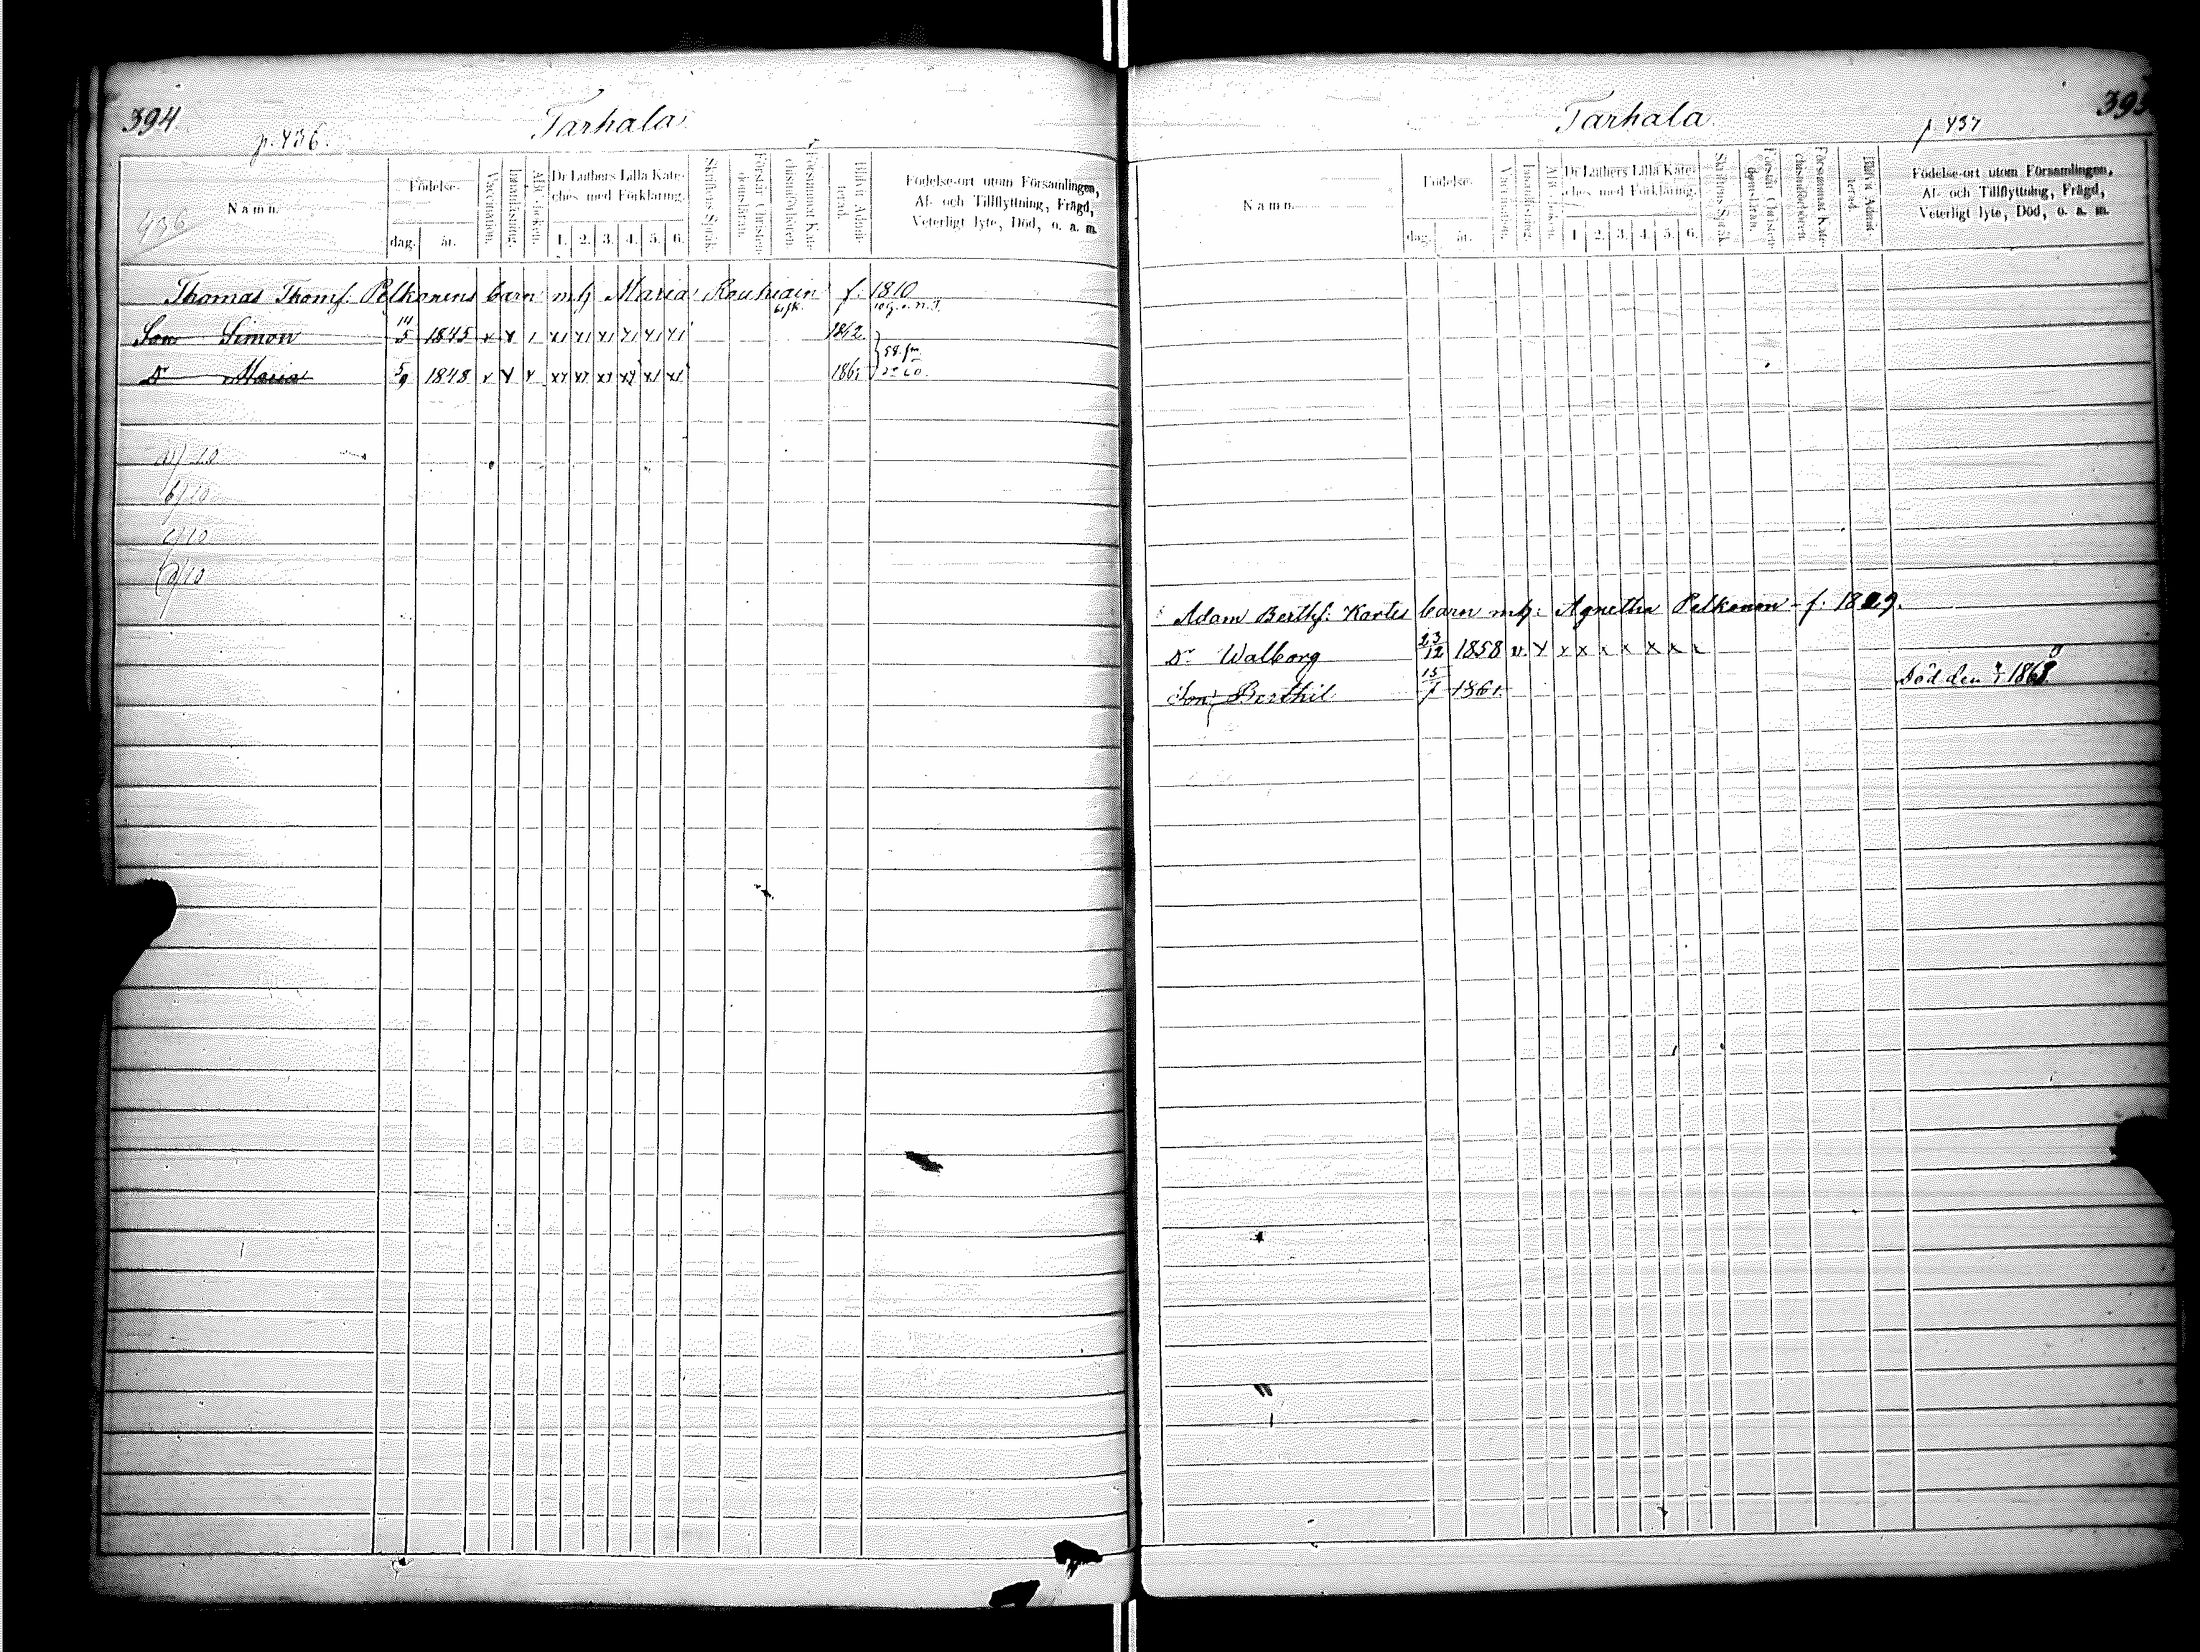 394
Tarhala
p. 436.
436
Namn.
Födelse-
dag.
år.
Vaccination.
Innanläsning.
ABC-boken.
Dr Luthers Lilla Kate-
ches med Förklaring.
1. 2. 3. 4. 5. 6.
Skriftens Språk.
Förstår Christen-
domsläran.
Försummat Kate-
chismiförhören.
Blifvit Admit-
terad.
Födelse-ort utom Församlingen,
Af- och Tillflyttning, Frägd,
Veterligt lyte, Död, o. a. m.
Thomas Thomf. Pelkonens barn mh Maria f. 1810
Son Simon 14/5 1845 1862
Dr Maria 5/9 1848 1861
a) 10
b) 10
c) 10
d) 10
Tarhala
p. 437
Namn.
Födelse-
dag.
år.
Vaccination.
Innanläsning.
ABC-boken.
Dr Luthers Lilla Kate-
ches med Förklaring.
1 2. 3. 4. 5. 6.
Skriftens Språk.
Förstår Christen-
domsläran.
Försummat Kate-
chismiförhören.
Blifvit Admit-
terad.
Födelse-ort utom Församlingen,
Af- och Tillflyttning, Frägd,
Veterligt lyte, Död, o. a. m.
Adam Berthf. Kortes barn mh: Agnetha Pelkonen f. 1829.
Dr Walborg 23/12 1858 x x x x x x x
Son Berthil 15/7 1861. Död den 1868